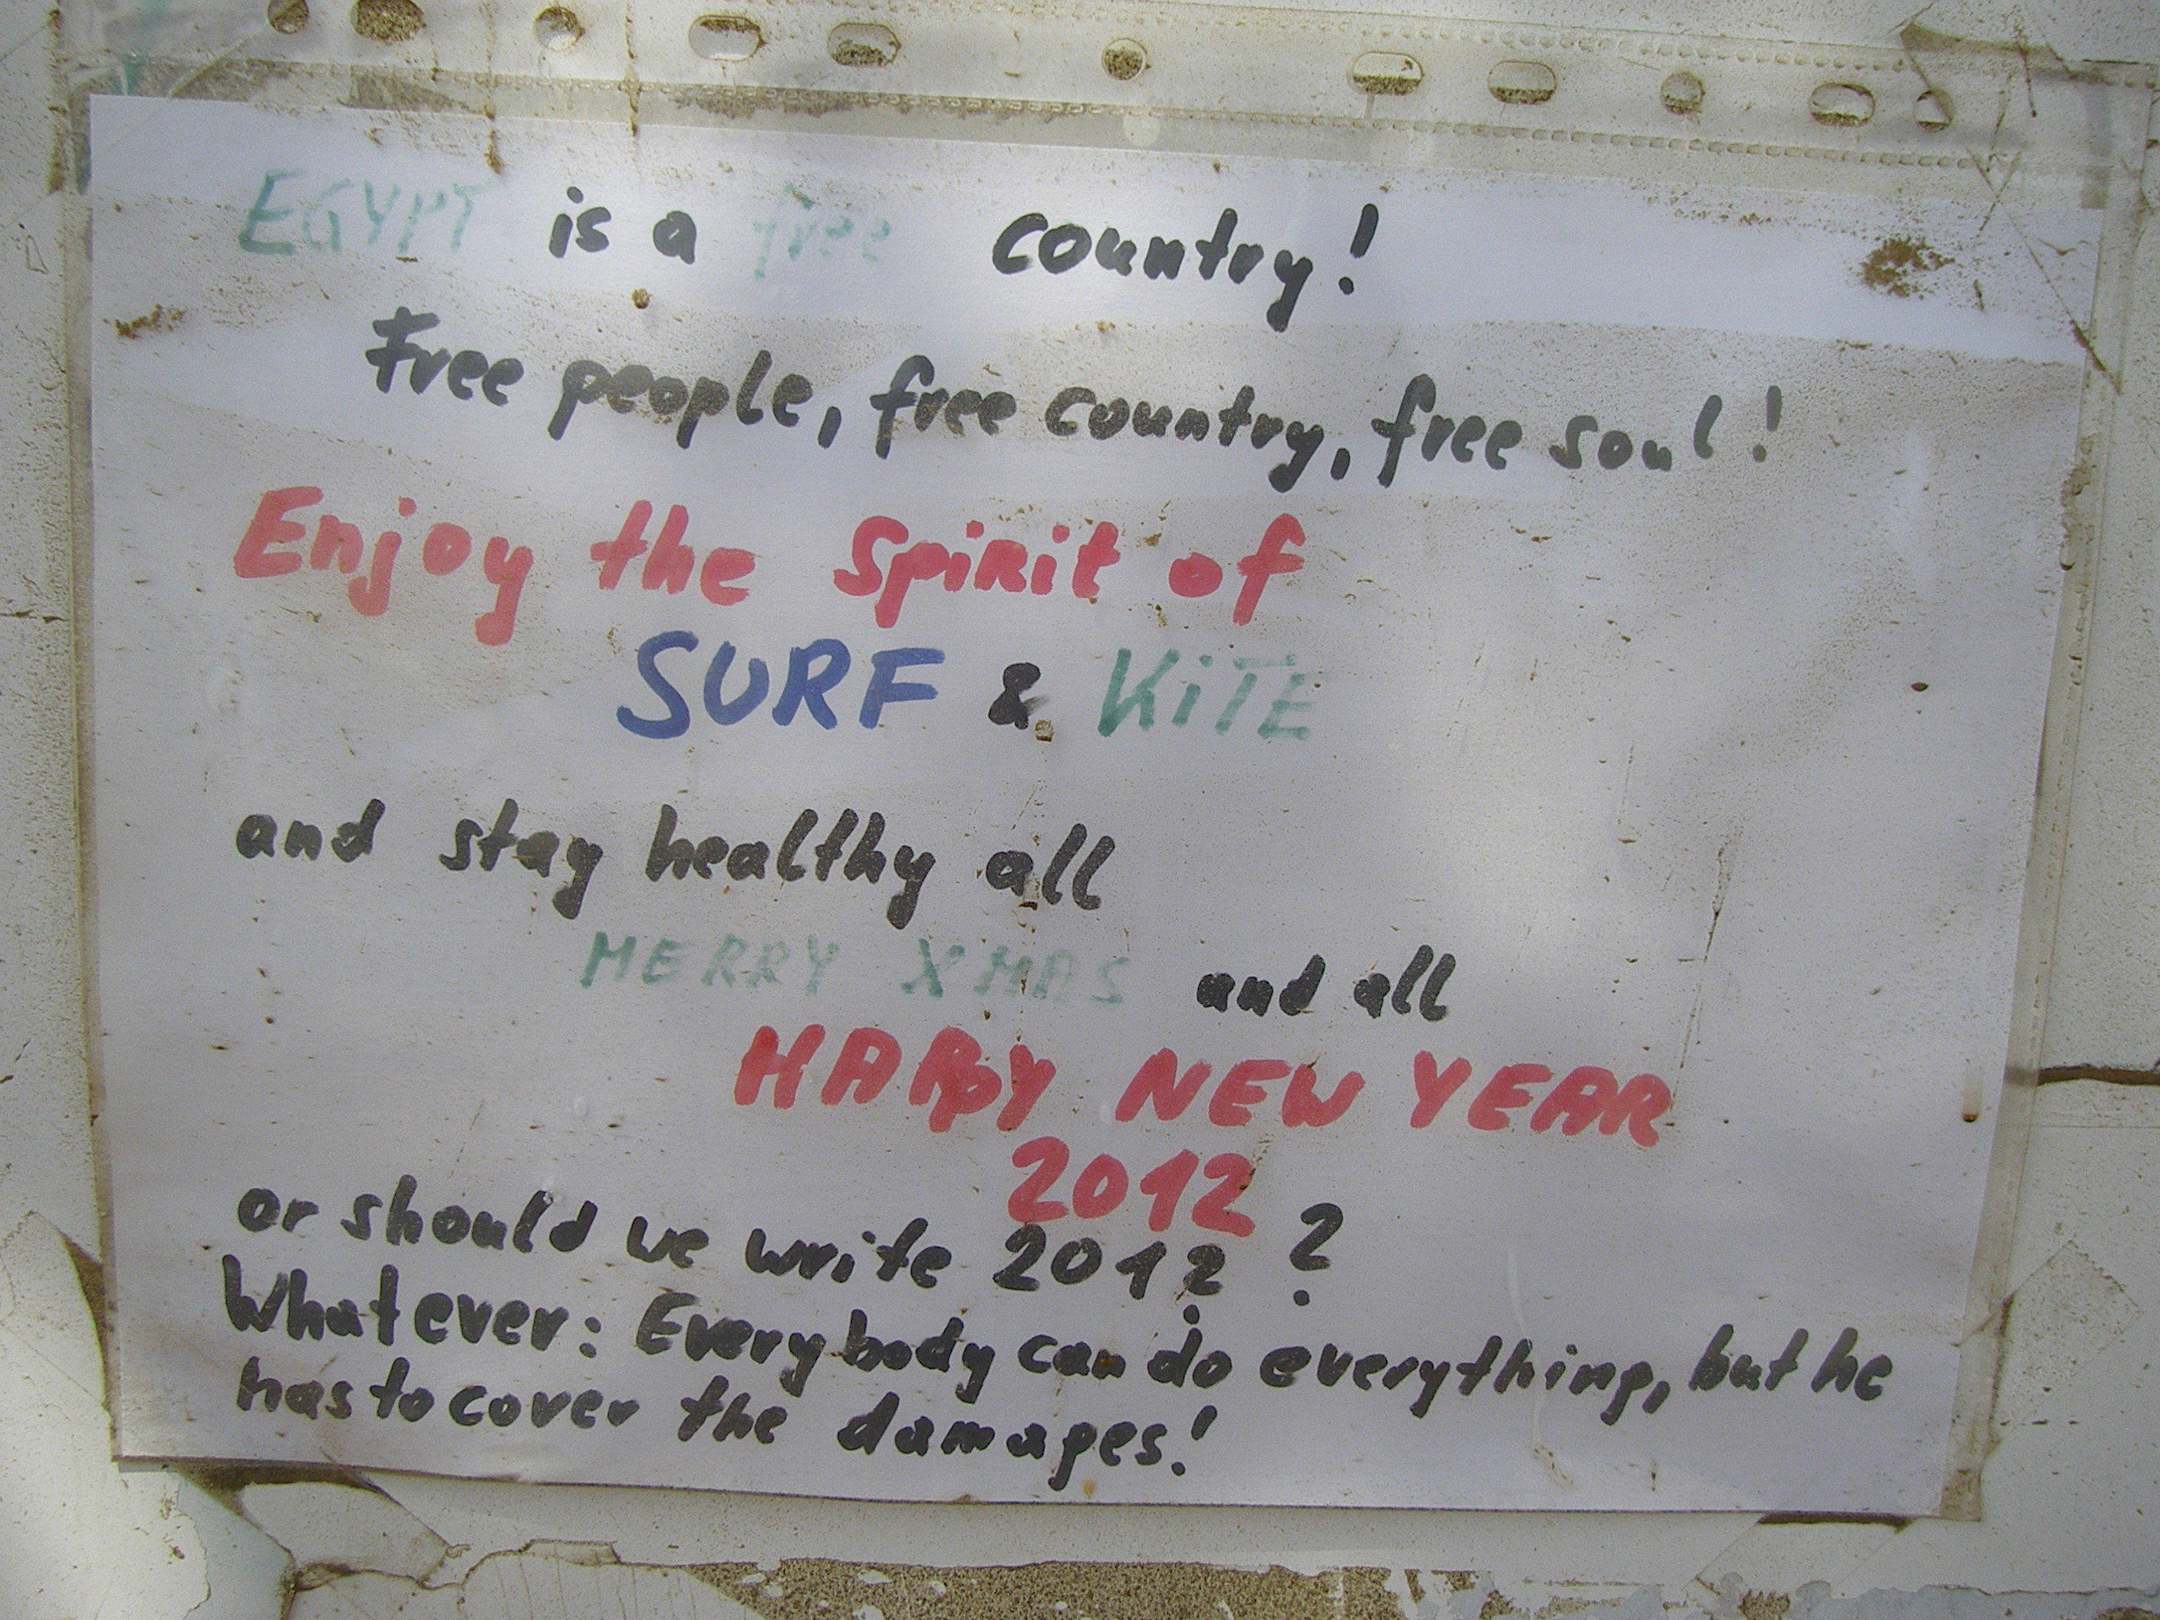 EGYPT is a free country!
Free people, free country, free soul!
Enjoy the spirit of
SURF & KiTE
and stay healthy all
MERRY XMAS and all
HAPPY NEW YEAR
2012
or should we write 2012?
Whatever: Everybody can do everything, but he
has to cover the damages!